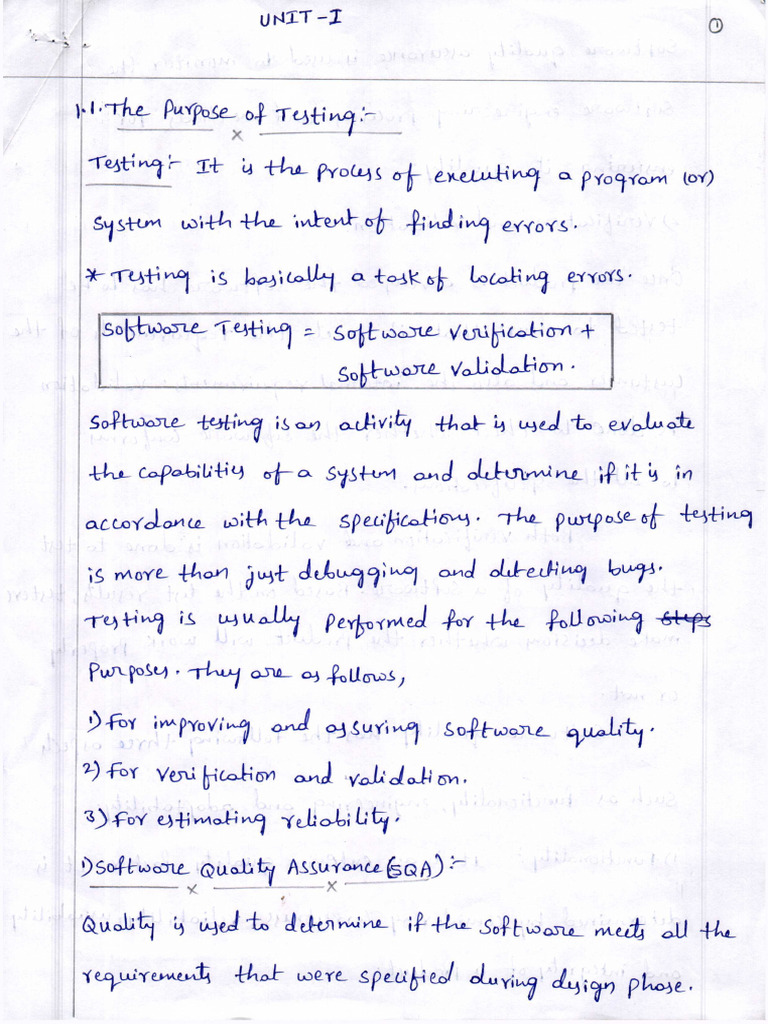 UNIT-I
1
1.1. The Purpose of Testing:-
Testing:- It is the process of executing a program (or)
System with the intent of finding errors.
* Testing is basically a task of locating errors.
Software Testing = Software verification +
Software validation.
Software testing is an activity that is used to evaluate
the capabilities of a system and determine if it is in
accordance with the specifications. The purpose of testing
is more than just debugging and detecting bugs.
Testing is usually performed for the following steps
Purposes. They are as follows,
1) For improving and assuring software quality.
2) For verification and validation.
3) For estimating reliability.
1) Software Quality Assurance (SQA):-
Quality is used to determine if the software meets all the
requirements that were specified during design phase.